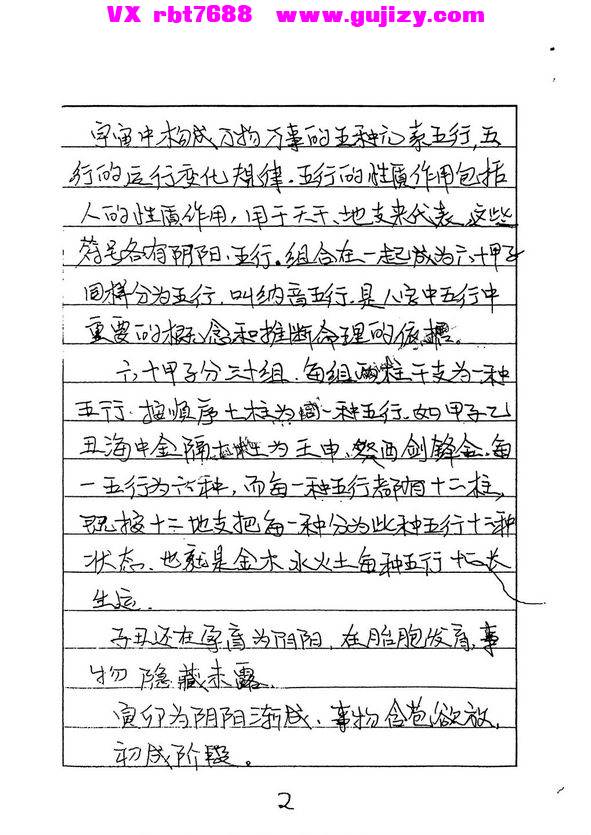 VX rbt7688 www.gujizy.com
宇宙中构成万物万事的五种元素五行,五
行的运行变化规律.五行的性质作用包括
人的性质作用,用于天干、地支来代表,这些
符号各有阴阳、五行。组合在一起成为六十甲子
同样分为五行,叫纳音五行,是八字中五行中
重要的概念和推断命理的依据。
六十甲子分三十组.每组两柱干支为一种
五行.按顺序七柱为同一种五行.如甲子乙
丑海中金隔七柱为壬申、癸酉剑锋金.每
一五行为六种,而每一种五行都有十二柱,
现按十二地支把每一种分为此种五行十二种
状态.也就是金木水火土每种五行十二长
生运.
子丑还在孕育为阴阳.在胎胞发育,事
物隐藏未露.
寅卯为阴阳渐成、事物含苞欲放,
初成阶段。
2